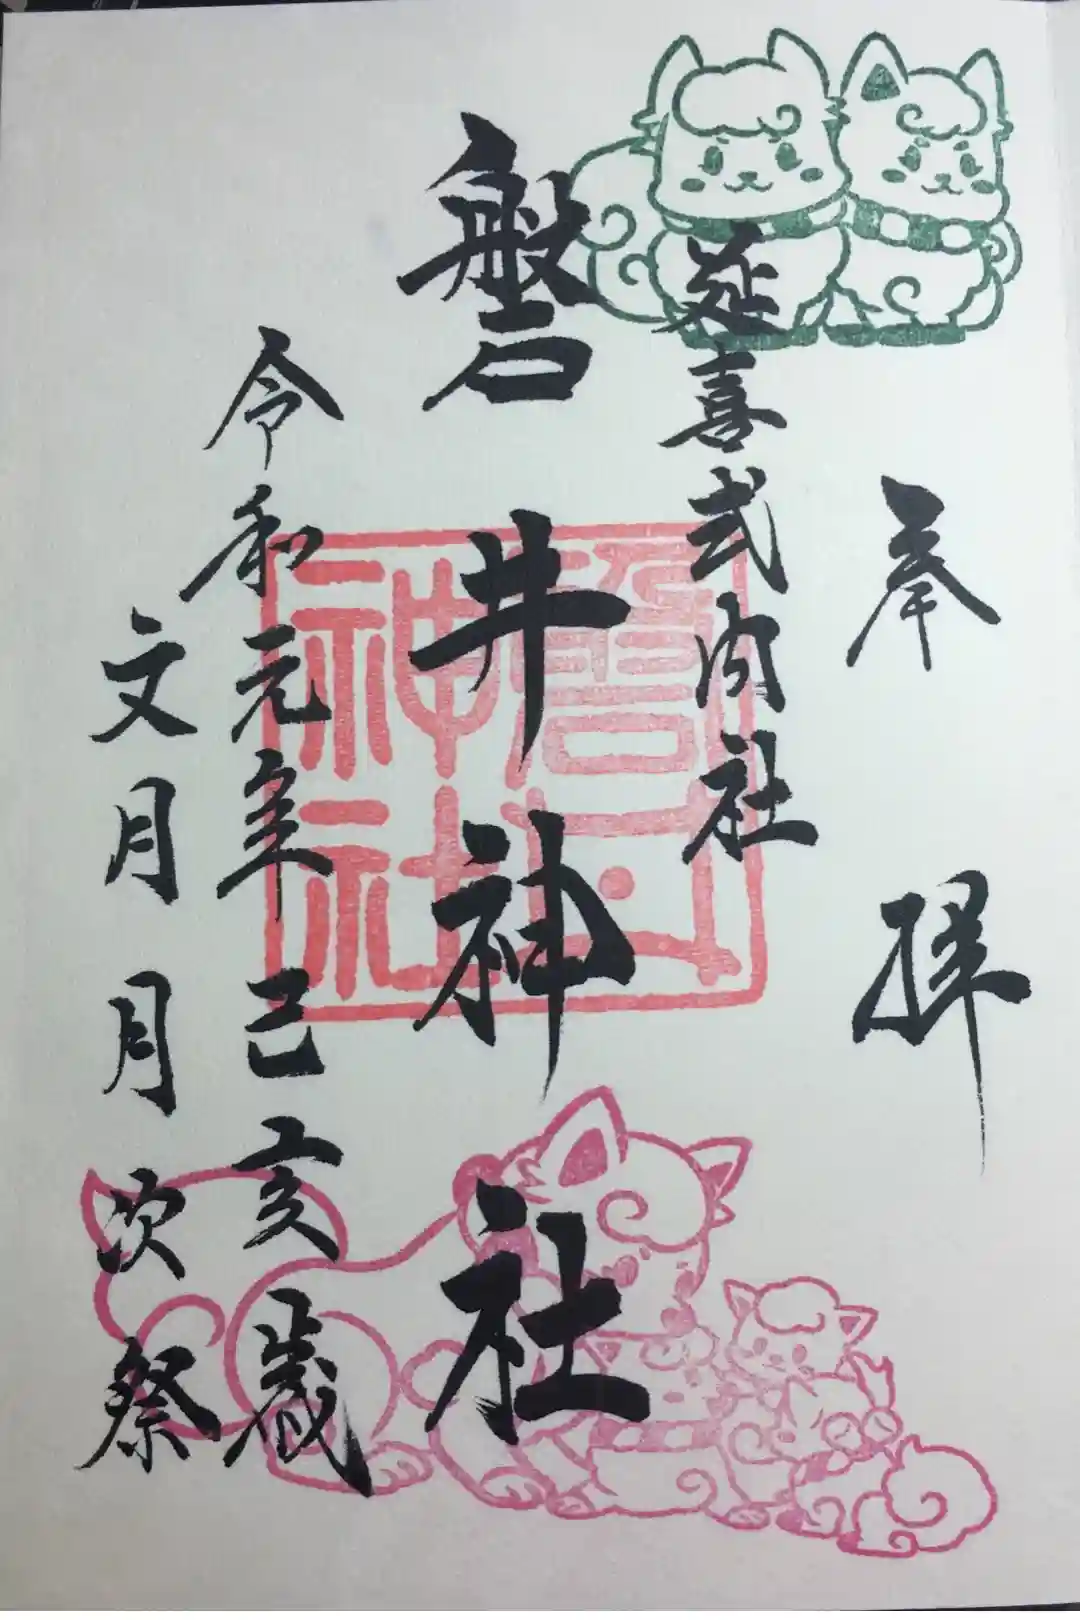 奉拝
延喜式内社
磐井神社
令和元年己亥歳
文月月次祭
磐井
神社